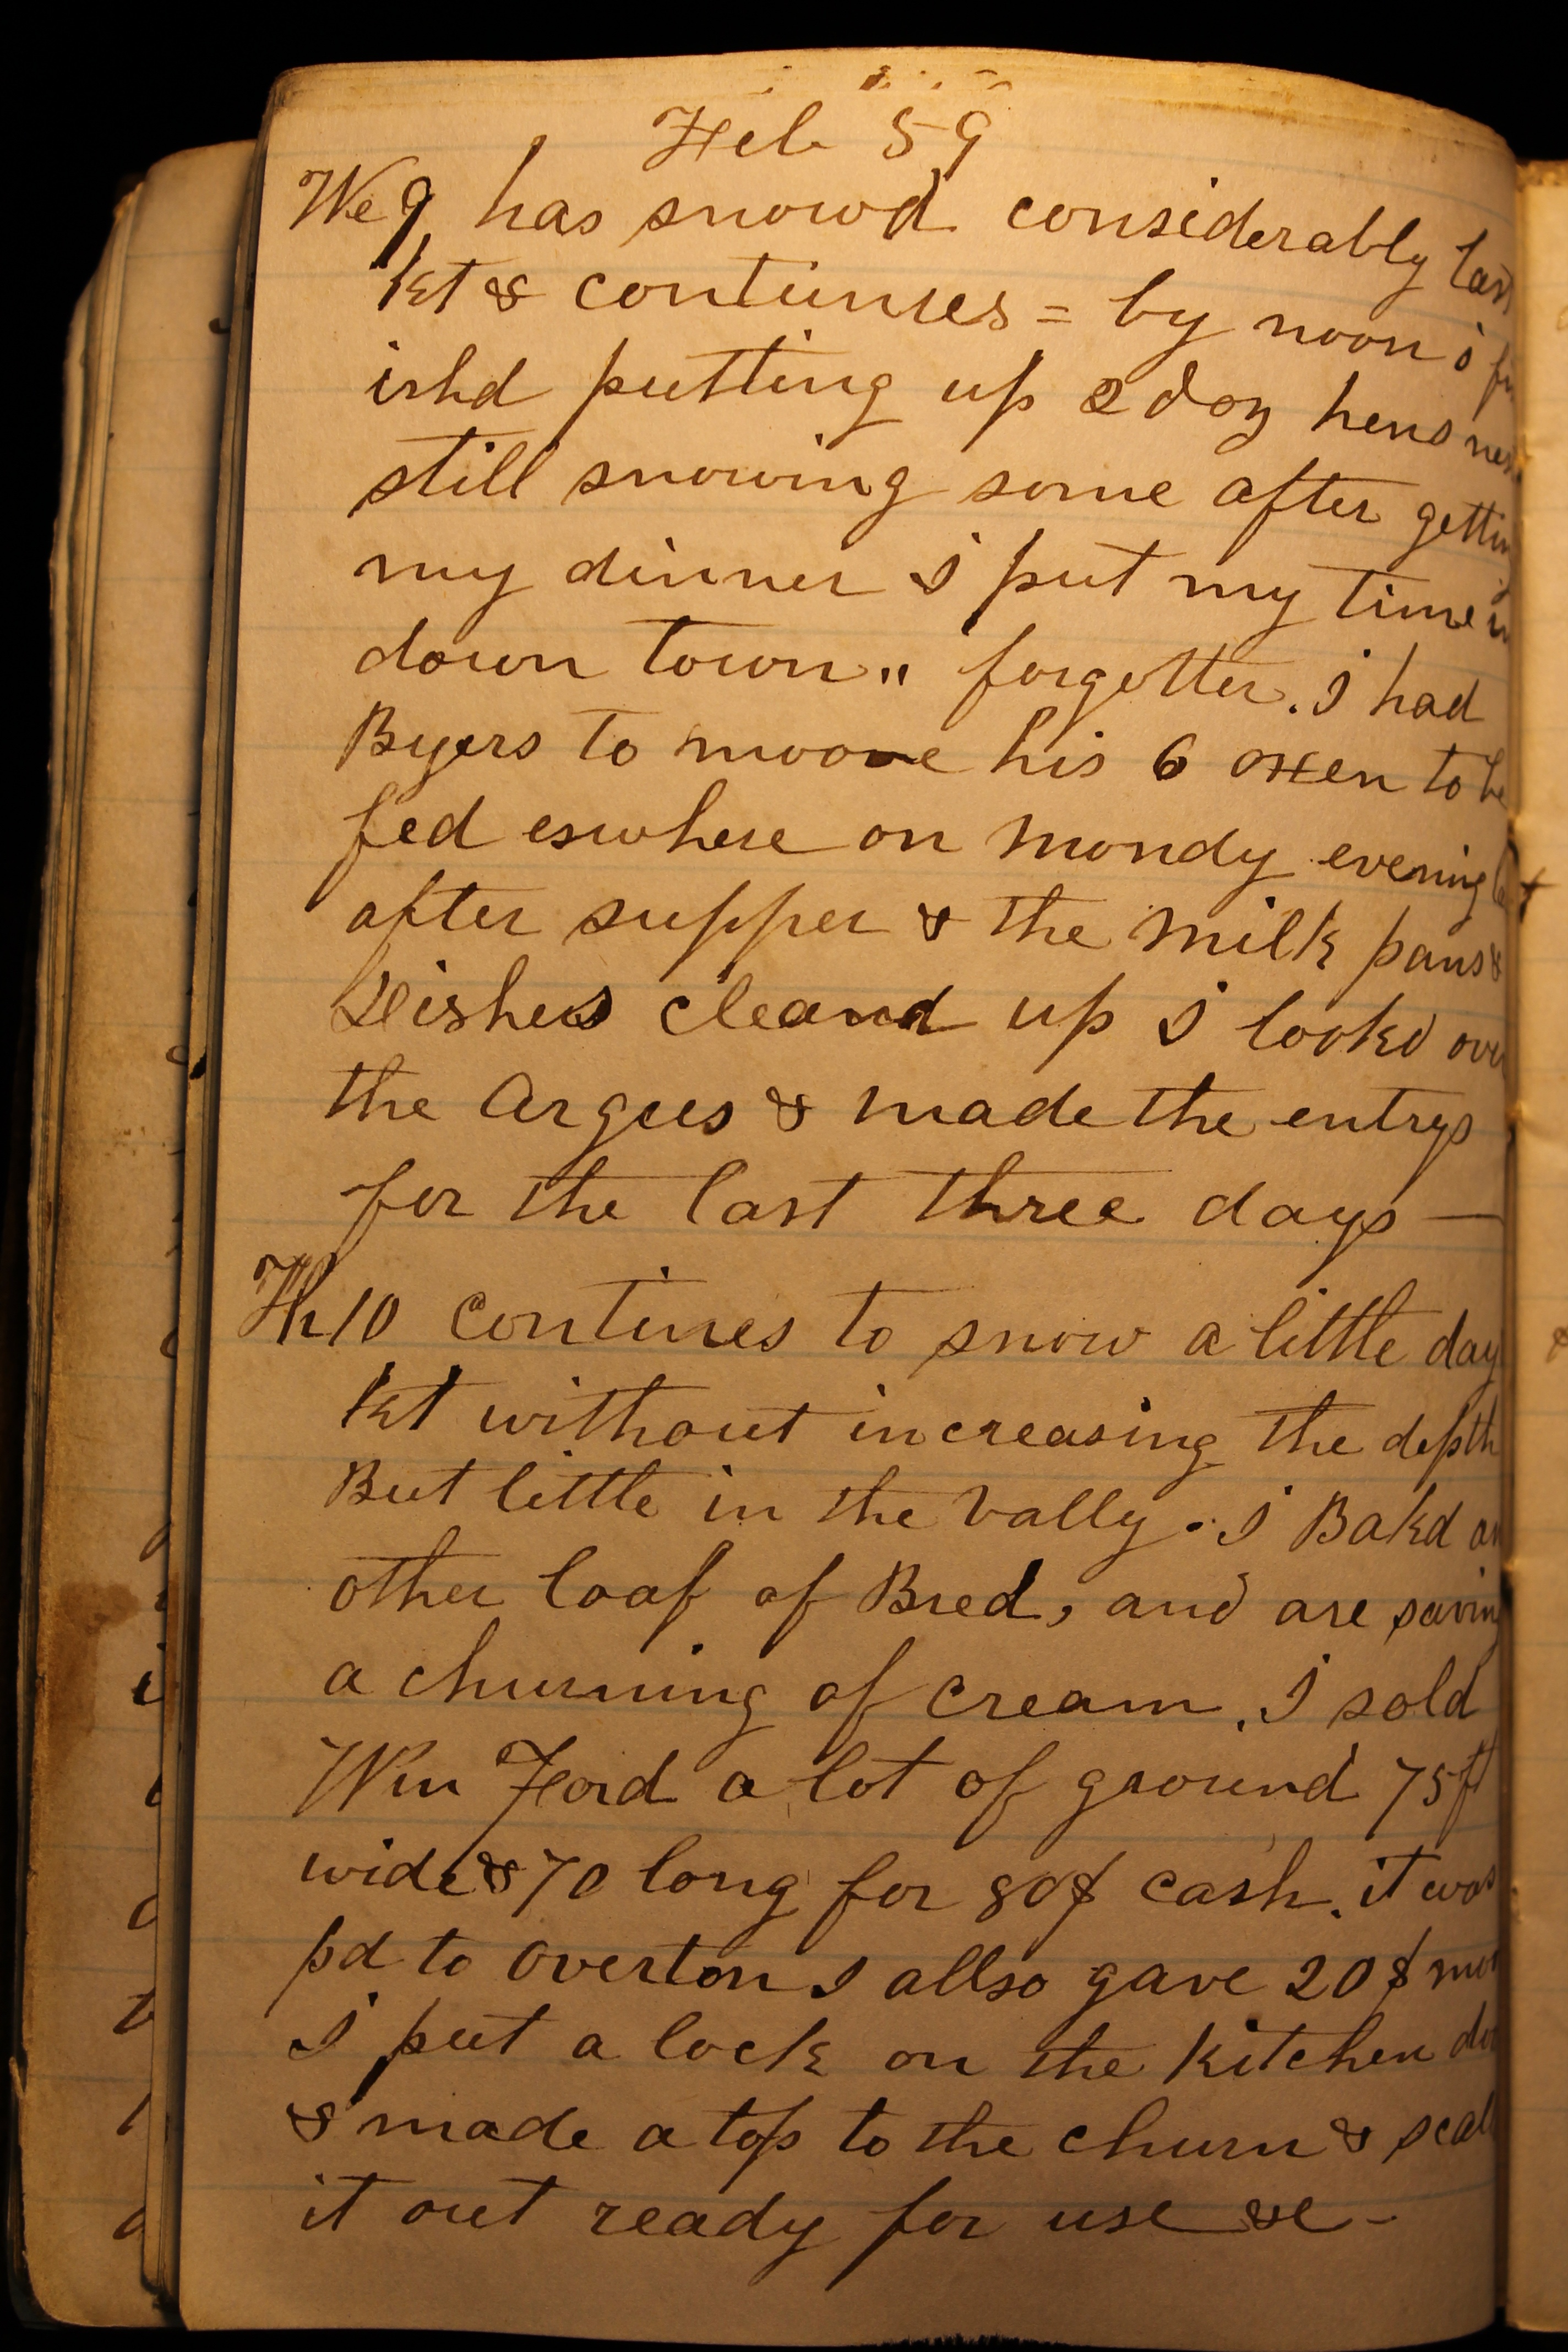 Feb 59
We 9, has snowd considerably last
kt & continues = by noon i fin
ishd putting up 2 doz hens nes
still snowing some after gettin
my dinner I put my time in
down town " forgotten. I had
Byers to moove his 6 oxen to be
fed eswhere on Mondy evening
after supper & the Milk pans &
Dishes cleand up I lookd over
the Argus & made the entrys
for the last three days —
Th 10 Contines to snow a little day
kt without increasing the depth
But little in the vally. I Bakd an
other loaf of Bred, and are saving
a churning of cream. I sold
Wm Ford a lot of ground 75 ft
wide & 70 long for 80$ cash. it was
pd to Overton I allso gave 20$ mor
I put a lock on the Kitchen do
& made a top to the churn & scal
it out ready for use &c -